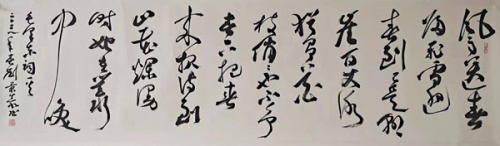 风雨送春
归飞雪迎
春到已是
悬崖百丈冰
犹有花
枝俏俏不争
春只把春
来报待到
山花烂漫
时她在丛
中笑
毛泽东词